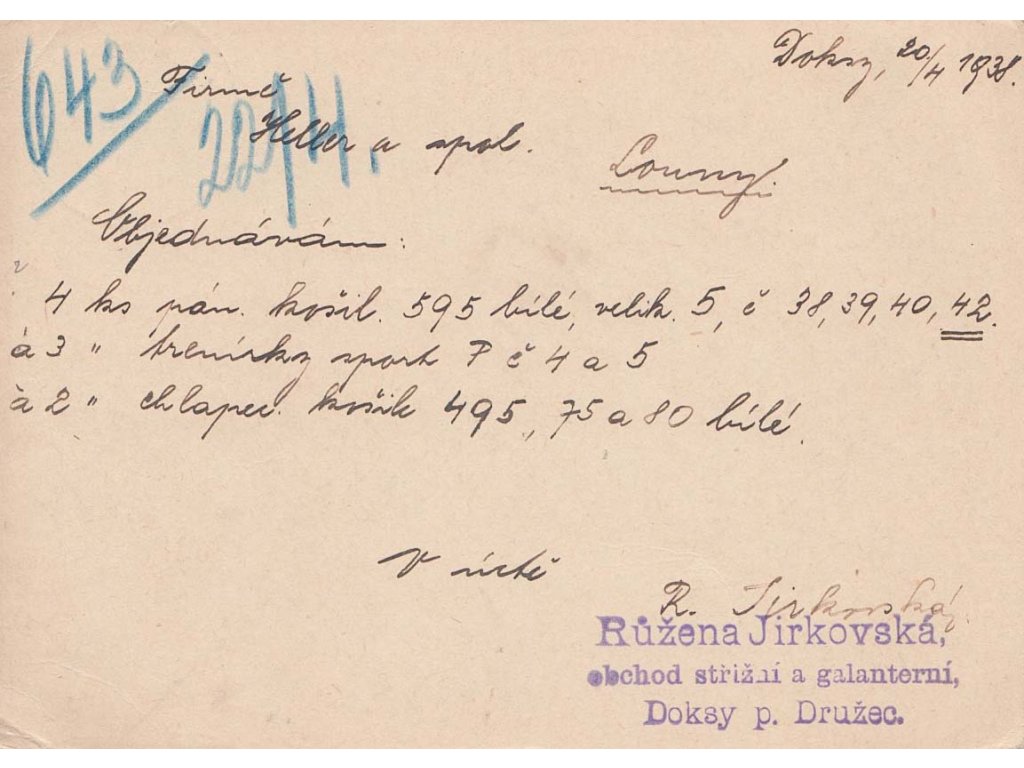 Doksy, 20/4 1938.
643
Firmě
22/4.
Heller a spol.
Louny.
Objednávám:
4 ks pán. košil. 595 bílé, velik. 5, č 38, 39, 40, 42.
à 3 " trenírky sport P č 4 a 5
à 2 " chlapec. košile 495, 75 a 80 bílé.
V úctě
R. Jirkovská
Růžena Jirkovská,
obchod střižní a galanterní,
Doksy p. Družec.